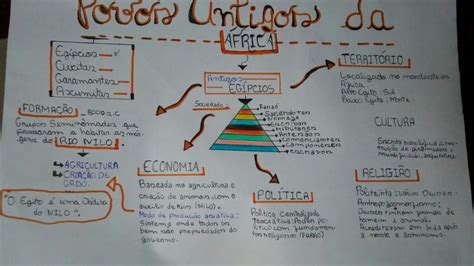 Povos Antigos da
ÁFRICA
Egípcios
Cuxitas
Garamantes
Axumitas
Antigos
EGÍPCIOS
Sociedade
Faraó
Sacerdotes
Nobres
Escribas
Militares
Artesãos
Comerciantes
Camponeses
Escravos
TERRITÓRIO
Localizado no nordeste da
África
Alto Egito: Sul
Baixo Egito: Norte.
FORMAÇÃO
5000 a.C
Grupos Seminômades que
passaram a habitar as mar-
gens do RIO NILO
AGRICULTURA
CRIAÇÃO DE
GADO.
"O Egito é uma Dádiva
do NILO"
ECONOMIA
Baseada na agricultura e
criação de animais com o
auxílio do Rio (NILO).
Modo de produção asiático:
Sistema onde todos os
bens são propriedades do
governo.
POLÍTICA
Política Centralizada
Teocrática: Poder po-
lítico com fundamento
religioso (FARAÓ)
CULTURA
Escrita hieroglífica, cons-
trução de pirâmides e
RELIGIÃO
Politeísta: Vários Deuses.
Antropozoomorfismo:
Deuses tinham formas de
homens e animais.
Acreditavam na vida após
a morte